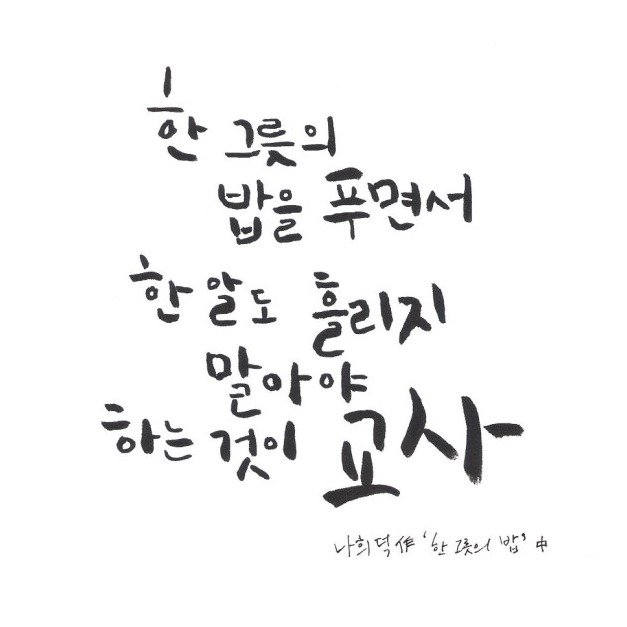 한 그릇의
밥을 푸면서
한 알도 흘리지
말아야
하는 것이 교사
나희덕 作 '한 그릇의 밥' 中